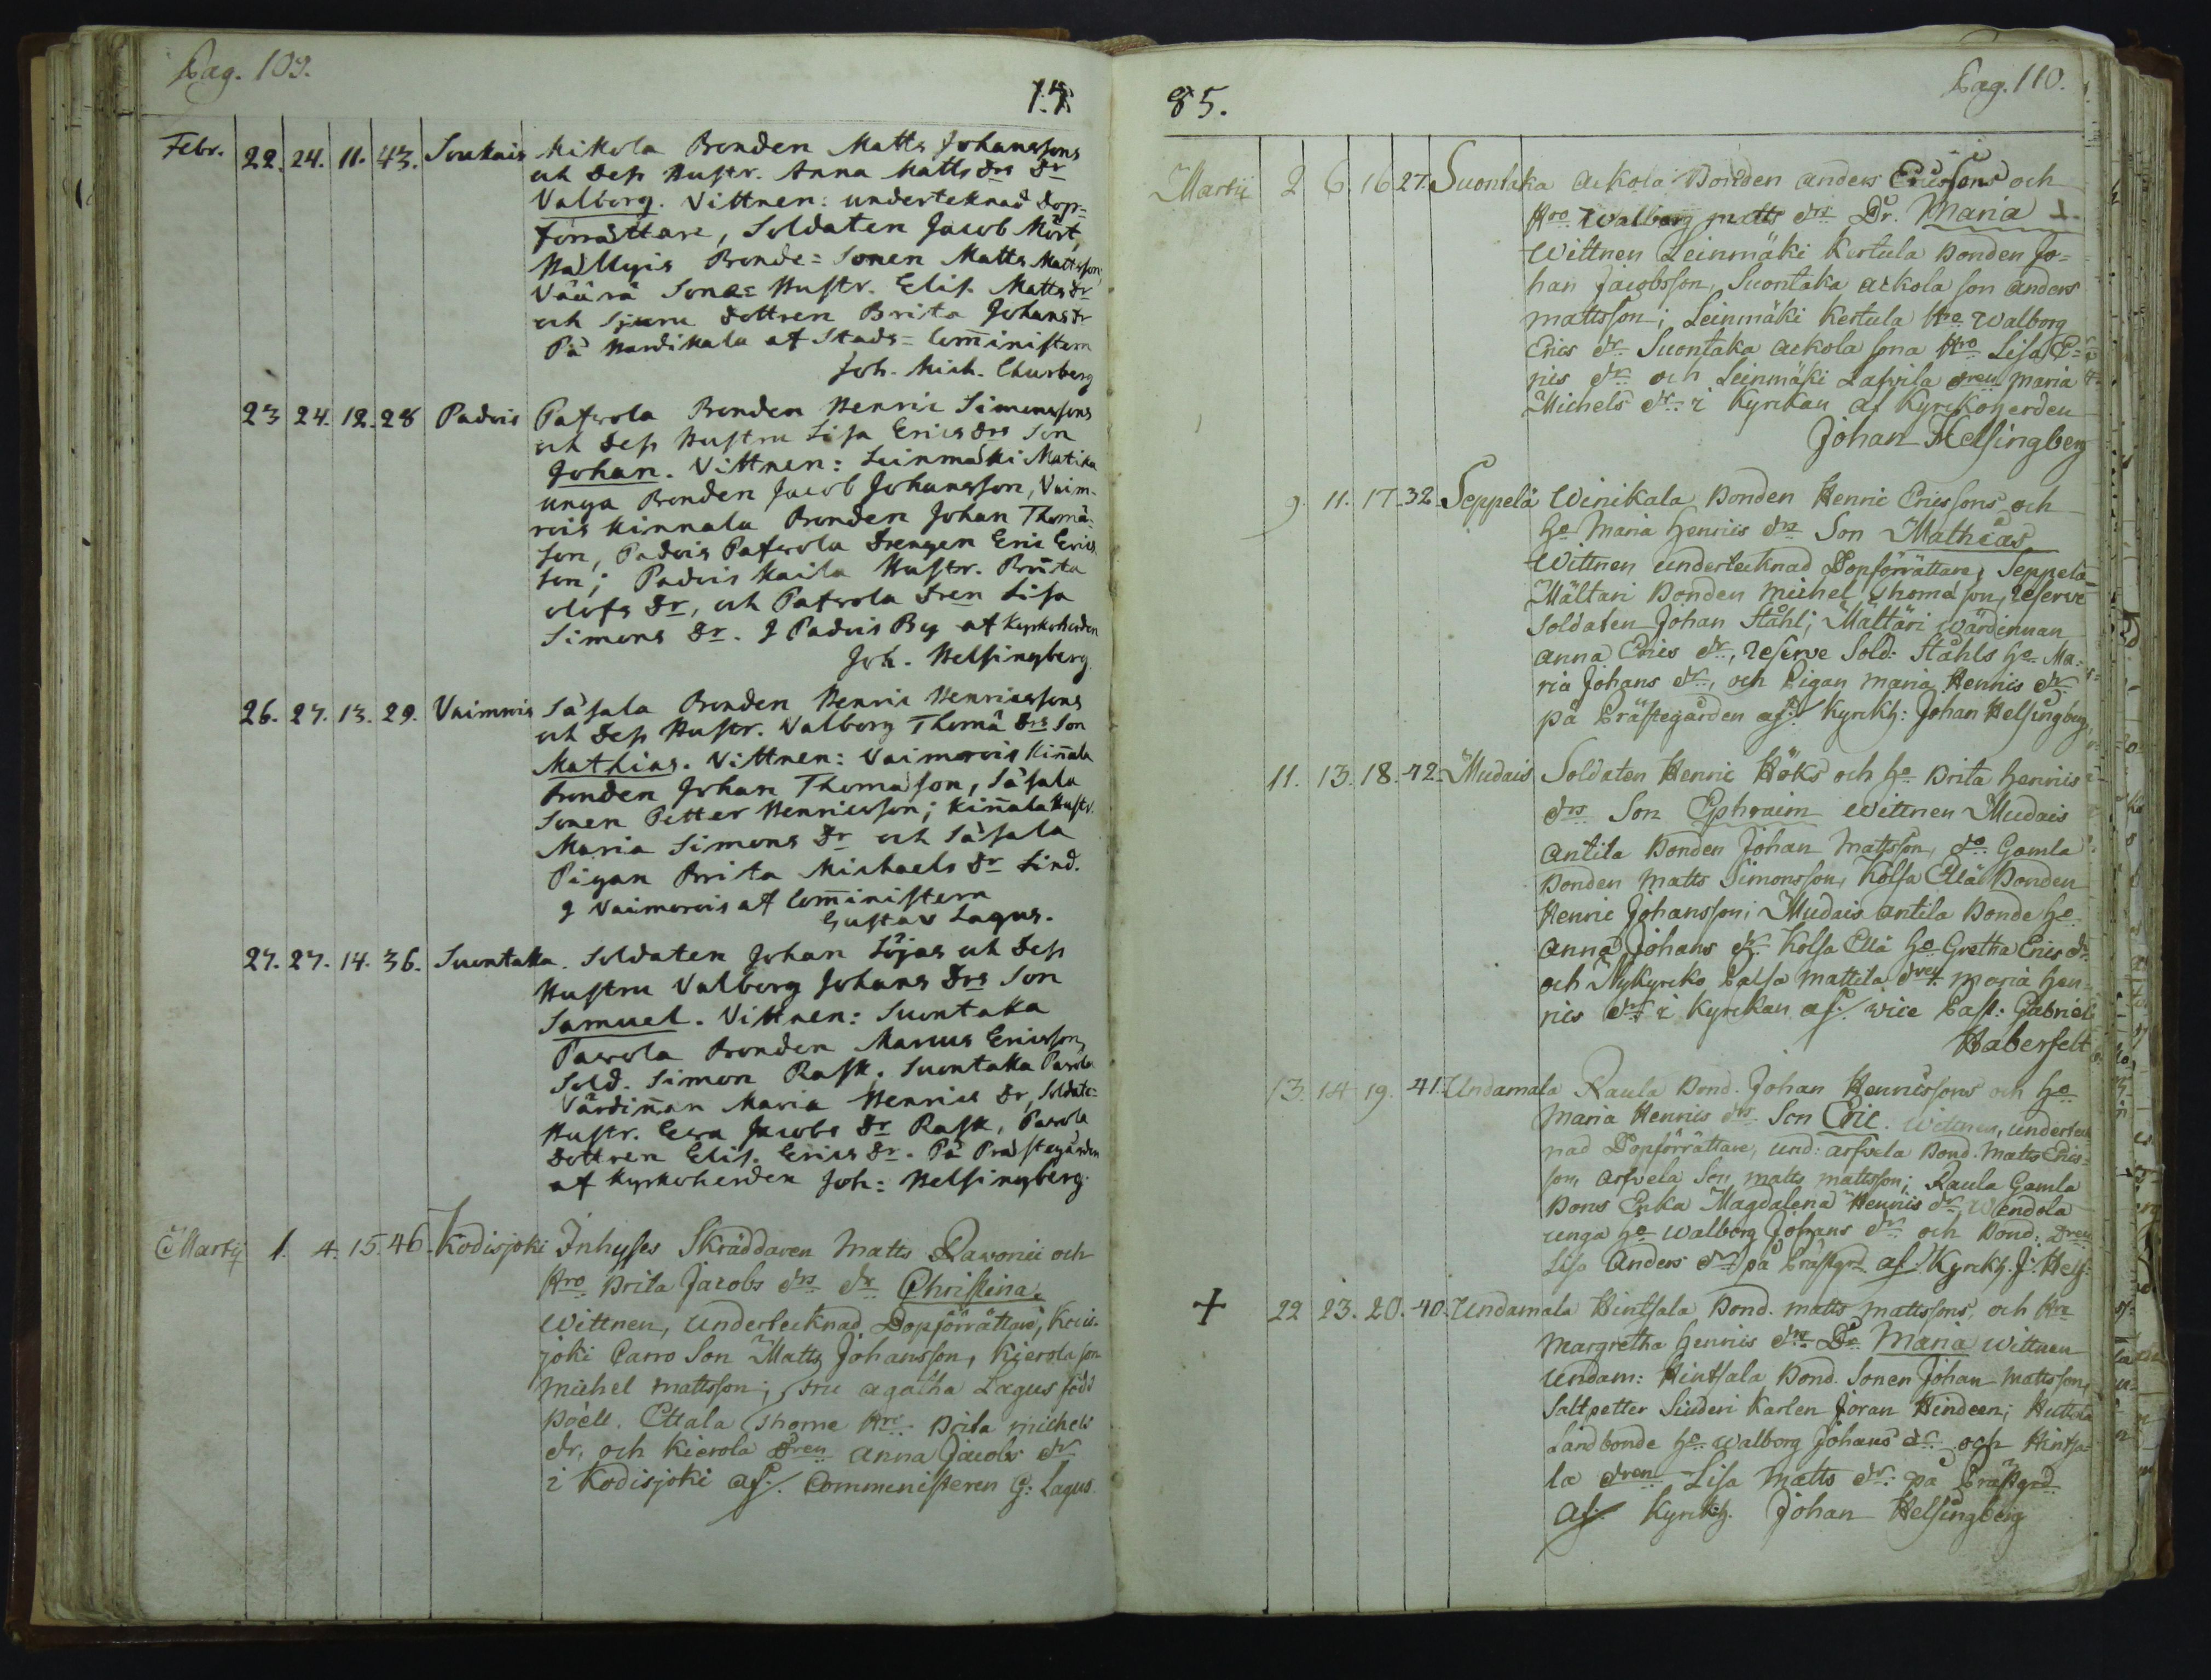 Pag. 109.
17
Febr. 22. 24. 11. 43. Soukais Mikola Bonden Matts Johanssons
och Dess Hustr. Anna Matts Drs Dr
Valborg. Vittnen: underteknad Dop=
förrättare, Soldaten Jacob Mört,
Bonde=Sonen Matts Mattsson,
Väärä Sona=Hustr. Elis. Matts Dr
och Dottren Brita Johans Dr
På af Stads=Comministern
Joh. Mich. Churberg
23 24. 12. 28 Padvis Paferola Bonden Henric Simonssons
och Dess Hustru Lisa Erics Drs Son
Johan. Vittnen: Leinmäki Matika
unga Bonden Jacob Johansson, Vaim-
rois Kinnala Bonden Johan Thomæ
Son, Padvis Paferola Drengen Eric Erics
son; Padvis Kaila Hustr. Brita
Olofs Dr, och Paferola Dren Lisa
Simons Dr. I Padvis By af Kyrkoherden
Joh. Helsingberg.
26. 27. 13. 29. Vaimrois Säfala Bonden Henric Henricssons
och Dess Hustr. Valborg Thomæ Drs Son
Mathias. Vittnen: Vaimorois Kiñala
Bonden Johan Thomæson, Säfala
Sonen Petter Henricsson; Kiñala Hustr.
Maria Simons Dr och Säfala
Pigan Brita Michaels Dr Lind.
I Vaimorois af Com̃inistern
Gustav Lagus.
27. 27. 14. 36. Suontaka. Soldaten Johan Löjas och Dess
Hustru Valborg Johans Drs Son
Samuel. Vittnen: Suontaka
Pavola Bonden Marcus Ericsson,
Sold. Simon Rask; Suontaka Pavola
Värdiñan Maria Henrics Dr, Soldate=
Hustr. Eva Jacobs Dr Rask, Pavola
Dottren Elis. Erics Dr. På Prästegården
af Kyrkoherden Joh: Helsingberg.
Martij 1. 4. 15. 46. Kodisjoki Inhyses Skräddaren Matts Ravonii och
Hro Brita Jacobs drs dr Christina.
Wittnen, undertecknad Dopförrättare,
joki Carro Son Matts Johansson, Kierola son
Michel Mattsson; Fru Agatha Lagus född
Poëlt. Ettala Thome Hro Brita Michels
dr, och Kierola Dren Anna Jacobs dr
i Kodisjoki af. Comministeren G: Lagus.
85.
Pag. 110.
Martii 2 6. 16 27. Suontaka Ackola Bonden Anders Ericssons och
Hro Walborg Matts drs Dr. Maria
Wittnen Leinmäki Kertula Bonden Jo=
han Jacobsson, Suontaka Ackola son Anders
Mattsson; Leinmäki Kertula Hro Walborg
Erics dr Suontaka Ackola sona Hro Lisa E=
rics dr och Leinmäki Lassila dren Maria
Michels dr i Kyrckan af Kyrckoherden
Johan Helsingberg
9. 11. 17. 32. Seppelä Winikala Bonden Henric Ericssons och
Ho Maria Henrics drs Son Mathias
Wittnen undertecknad Dopförrättare, Seppelä
Mältäri Bonden Michel Thomæson, reserve
Soldaten Johan Ståhl; Mältäri Wärdinnan
Anna Erics dr, reserve Sold: Ståhls Ho Ma=
ria Johans dr, och Pigan Maria Henrics dr
på Prästegården af. Kyrckh: Johan Helsingberg,
11. 13. 18. 42. Mudais Soldaten Henric Höks och Ho Brita Henrics
drs Son Ephraim Wittnen Mudais
Antila Bonden Johan Mattsson, do Gamla
Bonden Matts Simonsson, Kolsa Ellä Bonden
Henric Johansson; Mudais Antila Bonde Ho
Anna Johans dr Kolsa Ellä Ho Gretha Erics dr
och Nykyrcko Palsa Mattila dren Maria Hen=
rics dr i Kyrckan af. vice Past: Gabriel
Haberfelt
13. 14 19. 41. Undamala Raula Bond. Johan Henricssons och Ho
Maria Henrics drs Son Eric. Wittnen, underteck
nad Dopförrättare, und: Arfvela Bond. Matts Erics=
son, Arfvela Son Matts Mattsson; Raula Gamla
Bons Enka Magdalena Henrics dr, Wendola
unga Ho Walborg Johans dr och Bond: Dren
Lisa Anders dr på Prästgrd af. Kyrckh. J. Hels:
+ 22 23. 20. 40. Undamala Hintsala Bond. Matts Mattssons, och Hro
Margretha Henrics drs Dr Maria Wittnen
Undam: Hintsala Bond. Sonen Johan Mattsson,
Saltpetter Siuderi Karlen Jöran Hindeen; Huttola
Landbonde Ho Walborg Johans dr och Hintsa=
la dren Lisa Matts dr: på Prästgrd
Af. Kyrckh. Johan Helsingberg